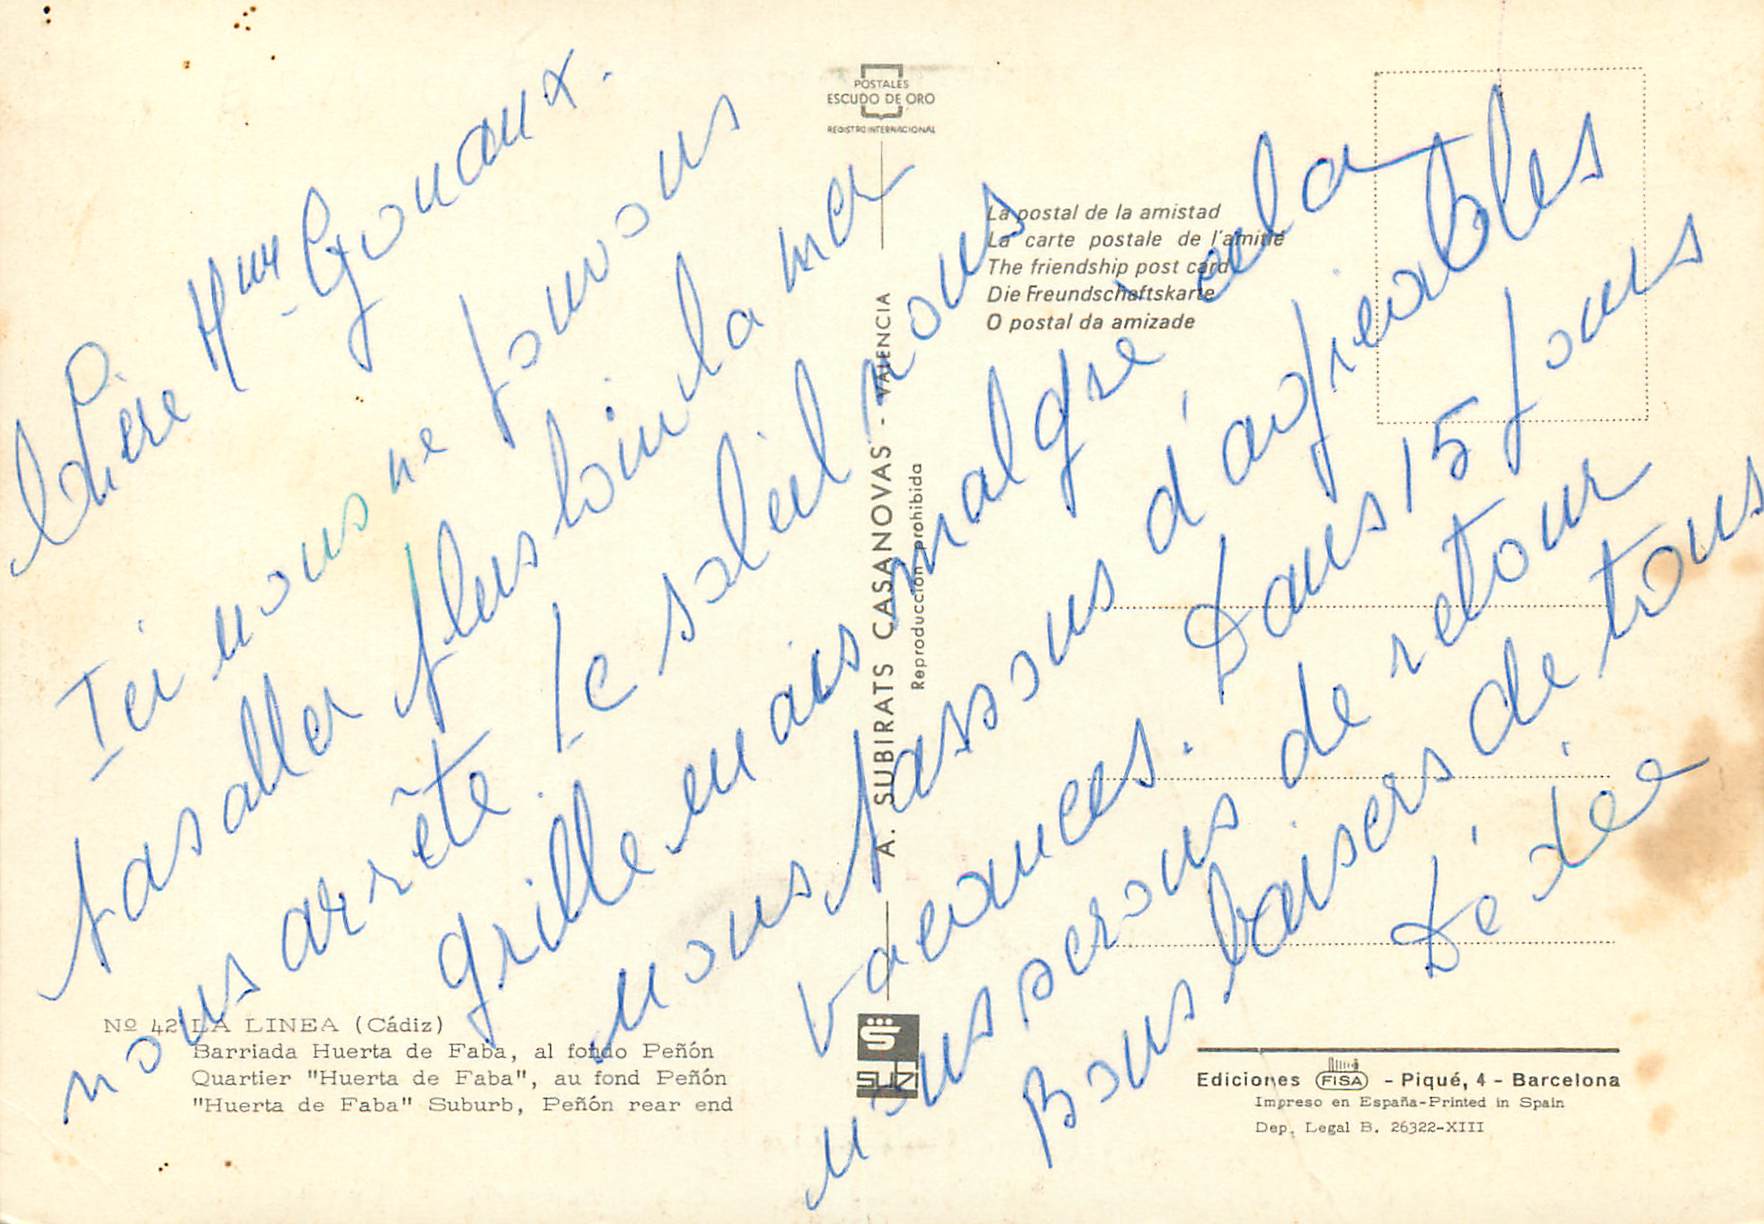 Chère Mme Gouaux.
Ici nous ne pouvons
pas aller plus loin la mer
nous arrête. le soleil nous
grille mais malgré cela
nous passons d'agréables
vacances. Dans 15 jours
nous serons de retour
Bons baisers de tous
Dédée
POSTALES
ESCUDO DE ORO
REGISTRO INTERNACIONAL
La postal de la amistad
La carte postale de l'amitié
The friendship post card
Die Freundschaftskarte
O postal da amizade
A. SUBIRATS CASANOVAS - VALENCIA
Reproducción prohibida
Nº 42 LA LINEA (Cádiz)
Barriada Huerta de Faba, al fondo Peñón
Quartier "Huerta de Faba", au fond Peñón
"Huerta de Faba" Suburb, Peñón rear end
Ediciones FISA - Piqué, 4 - Barcelona
Impreso en España-Printed in Spain
Dep. Legal B. 26322-XIII